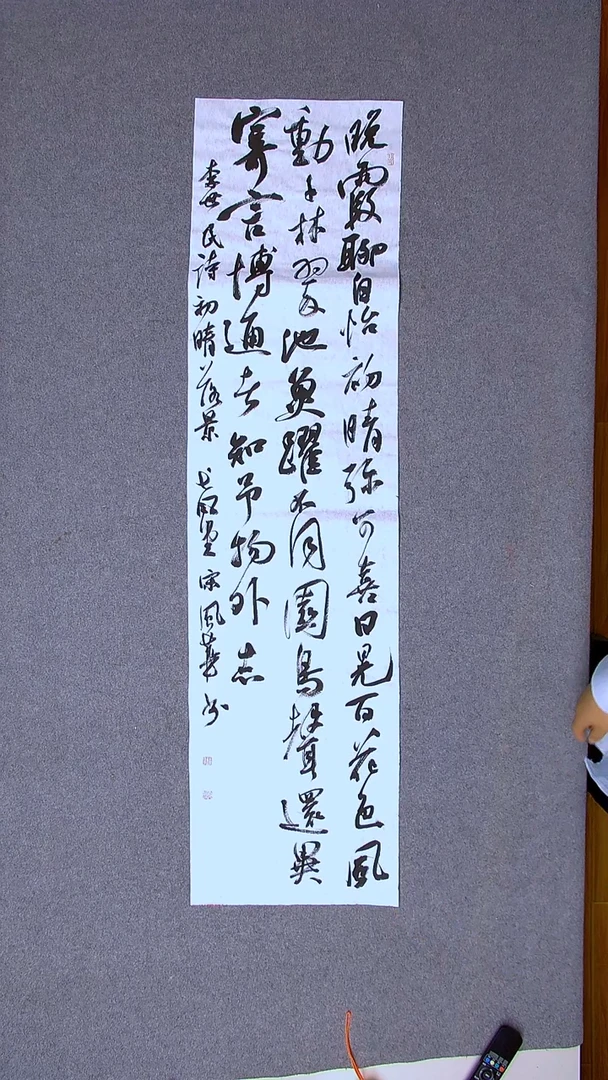 晚霞聊自怡初晴弥可喜日晃百花色風
動千林翠池魚躍不同園鳥聲還異
寄言博通者知予物外志
李世民詩初晴落景 堂宋風華书